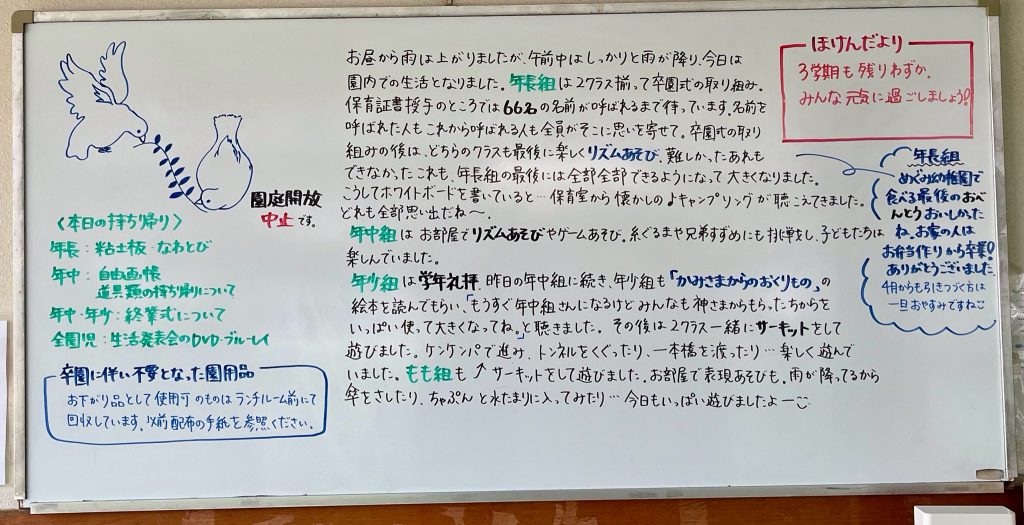 園庭開放
中止です。
〈本日の持ち帰り〉
年長：粘土板・なわとび
年中：自由画帳
道具類の持ち帰りについて
年中・年少：終業式について
全園児：生活発表会のDVD・ブルーレイ
卒園に伴い不要となった園用品
お下がり品として使用可のものはランチルーム前にて
回収しています。以前配布の手紙を参照ください。
お昼から雨は上がりましたが、午前中はしっかりと雨が降り、今日は
園内での生活となりました。年長組は2クラス揃って卒園式の取り組み。
保育証書授与のところでは66名の名前が呼ばれるまで待っています。名前を
呼ばれた人もこれから呼ばれる人も全員がそこに思いを寄せて。卒園式の取り
組みの後は、どちらのクラスも最後に楽しくリズムあそび。難しかったあれも
できなかったこれも、年長組の最後には全部全部できるようになって大きくなりました。
こうしてホワイトボードを書いていると…保育室から懐かしの♪キャンプソングが聴こえてきました。
どれも全部思い出だね〜。
年中組はお部屋でリズムあそびやゲームあそび。糸ぐるまや兄弟すずめにも挑戦し、子どもたちは
楽しんでいました。
年少組は学年礼拝。昨日の年中組に続き、年少組も「かみさまからのおくりもの」の
絵本を読んでもらい、「もうすぐ年中組さんになるけどみんなも神さまからもらったちからを
いっぱい使って大きくなってね。」と聴きました。その後は2クラス一緒にサーキットをして
遊びました。ケンケンパで進み、トンネルをくぐったり、一本橋を渡ったり…楽しく遊んで
いました。もも組も↗サーキットをして遊びました。お部屋で表現あそびも。雨が降ってるから
傘をさしたり、ちゃぷんと水たまりに入ってみたり…今日もいっぱい遊びましたよー☺
ほけんだより
3学期も残りわずか。
みんな元気に過ごしましょう!
年長組
めぐみ幼稚園で
食べる最後のおべ
んとうおいしかった
ね。お家の人は
お弁当作りから卒業!
ありがとうございました。
4月からもひきつづく方は
一旦おやすみですね☺